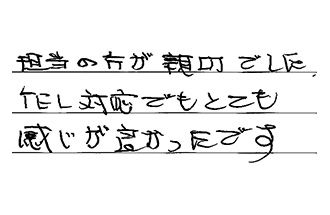 担当の方が親切でした
TEL対応でもとても
感じが良かったです